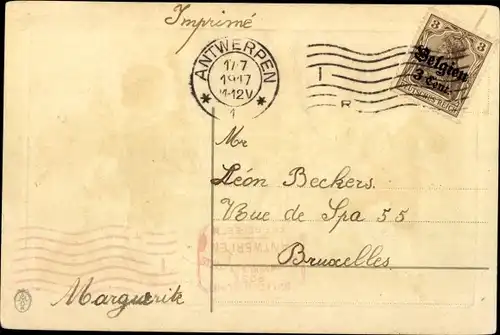 Imprimé
ANTWERPEN
17-7
1917
11-12V
* 1 *
R
3 3
Belgien
3 Cent.
DEUTSCHES REICH
Mr
Léon Beckers.
Rue de Spa 55
Bruxelles.
ANTWERPEN
Marguerite